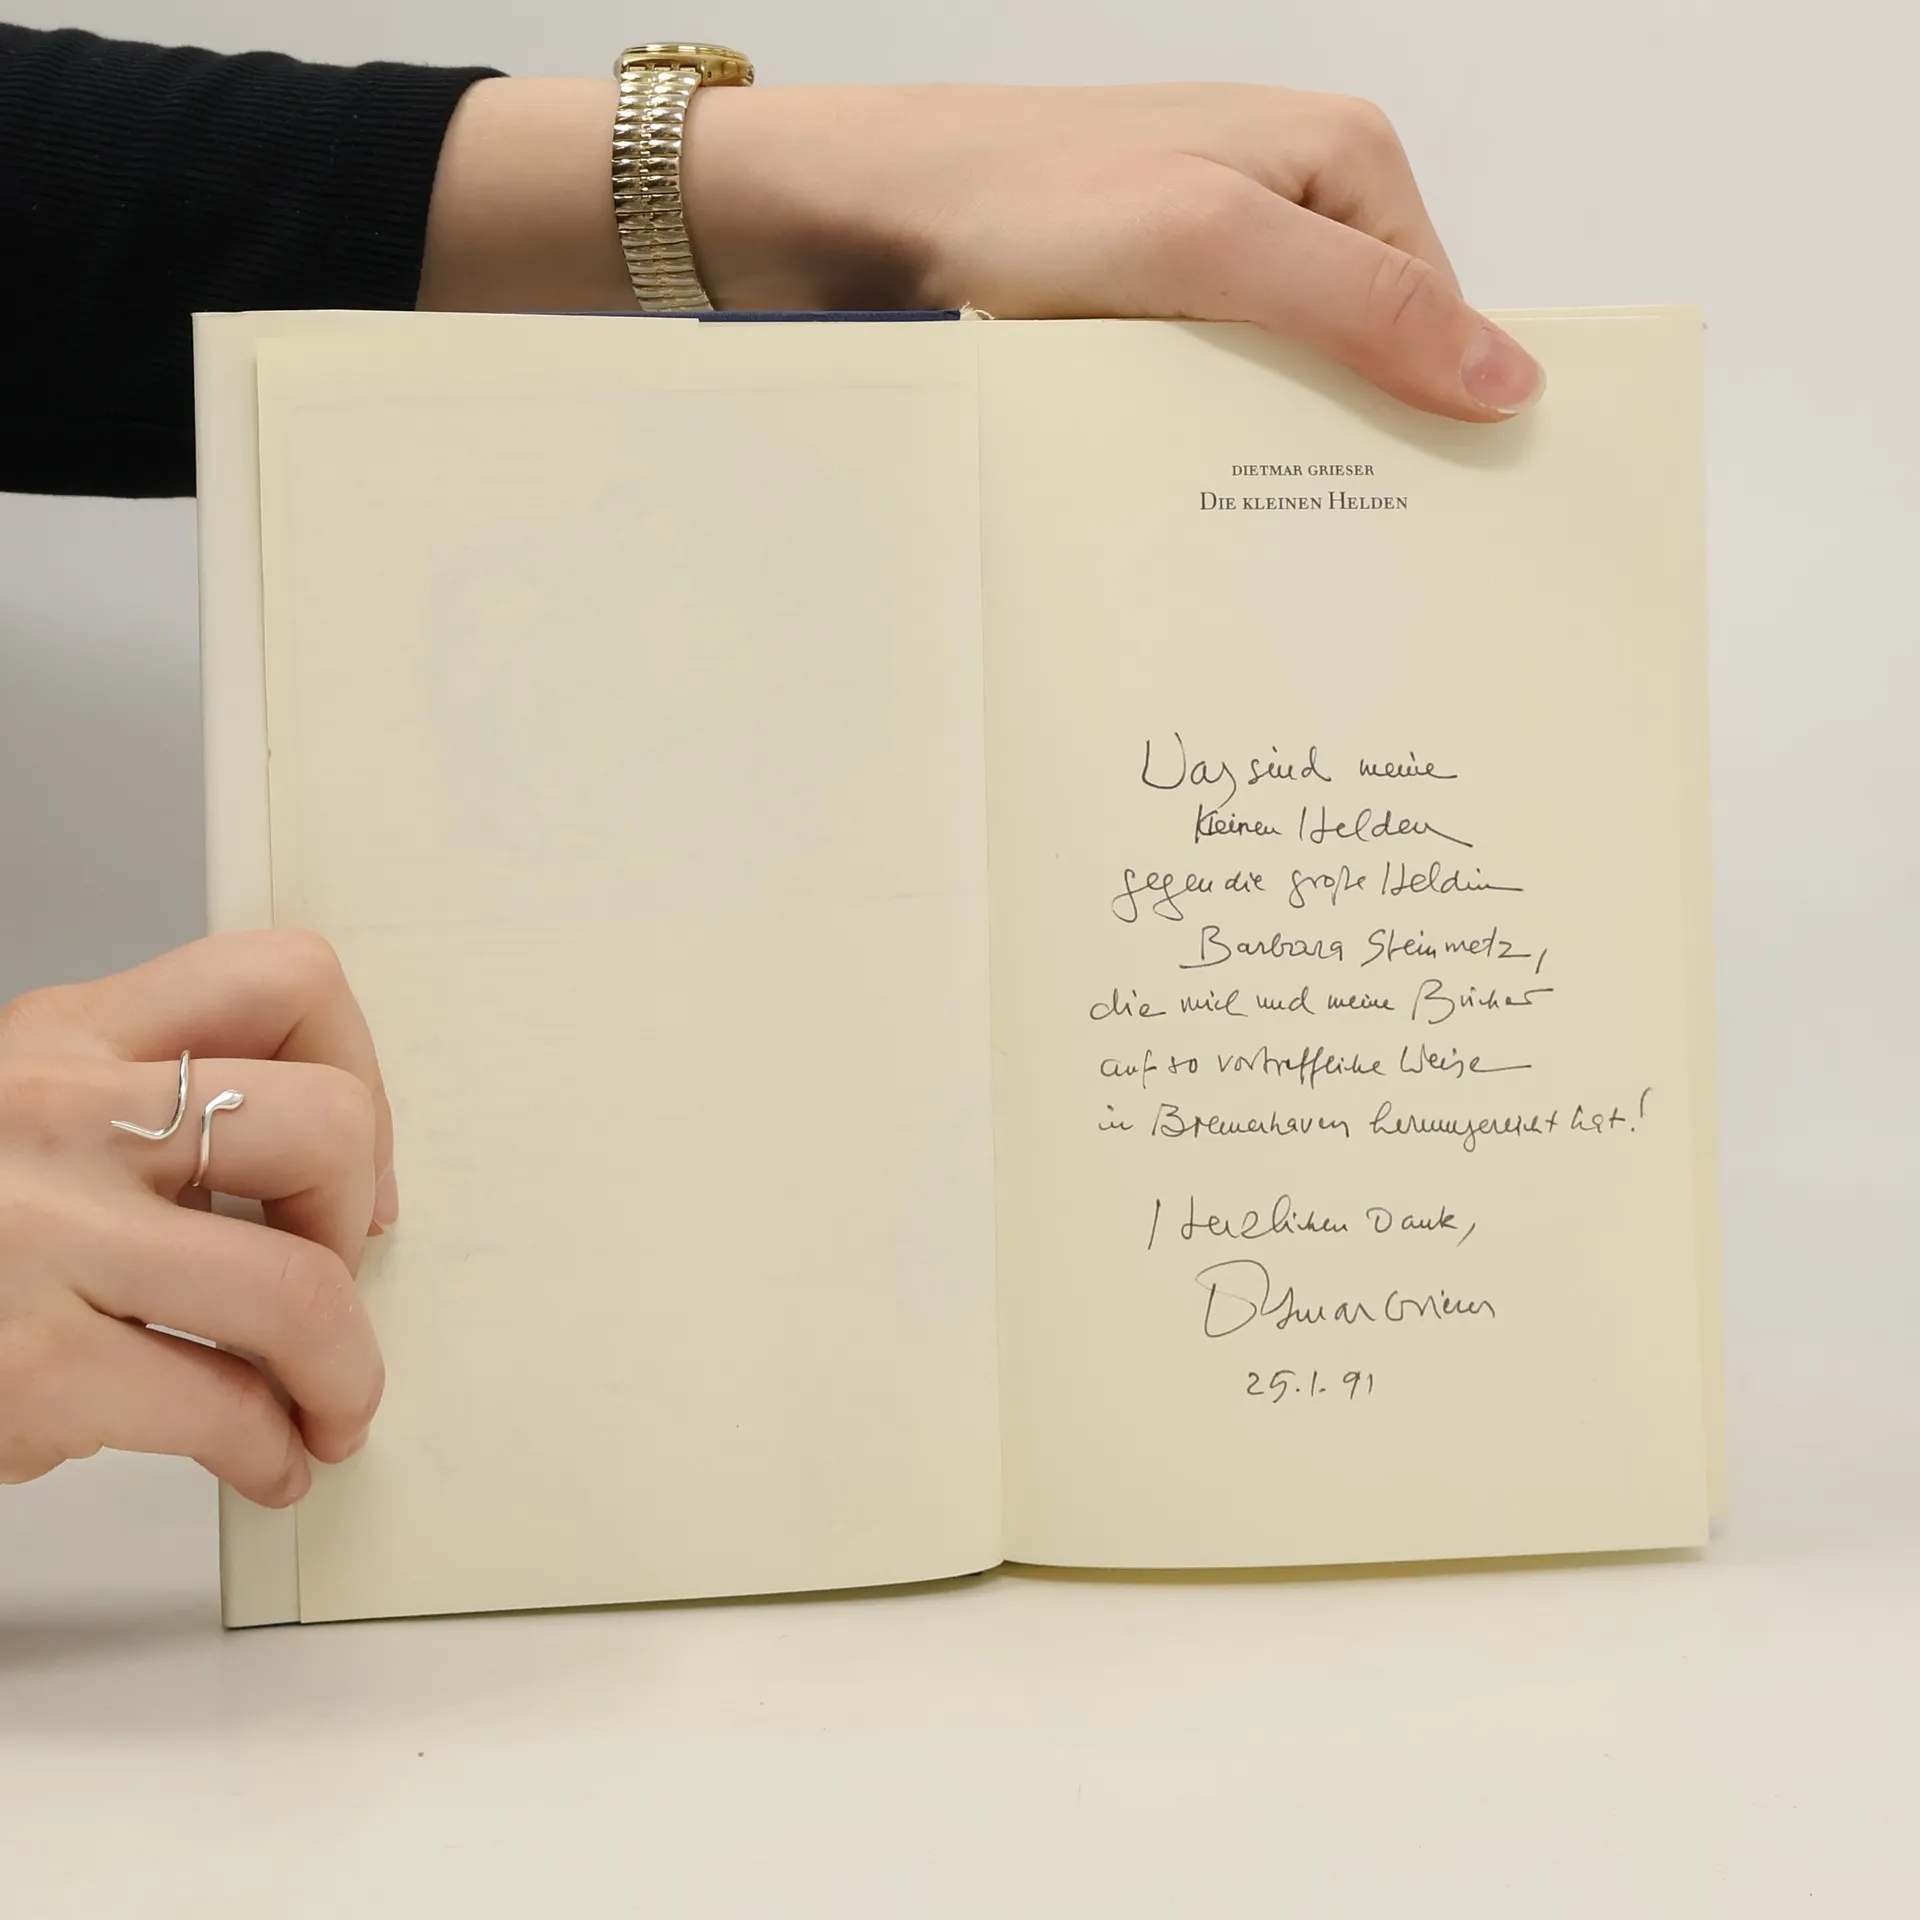 DIETMAR GRIESER
DIE KLEINEN HELDEN
Was sind meine
kleinen Helden
gegen die große Heldin
Barbara Steinmetz,
die mich und meine Bücher
auf so vortreffliche Weise
in Bremerhaven herumgereicht hat!
Herzlichen Dank,
Dietmar Grieser
25.1.91